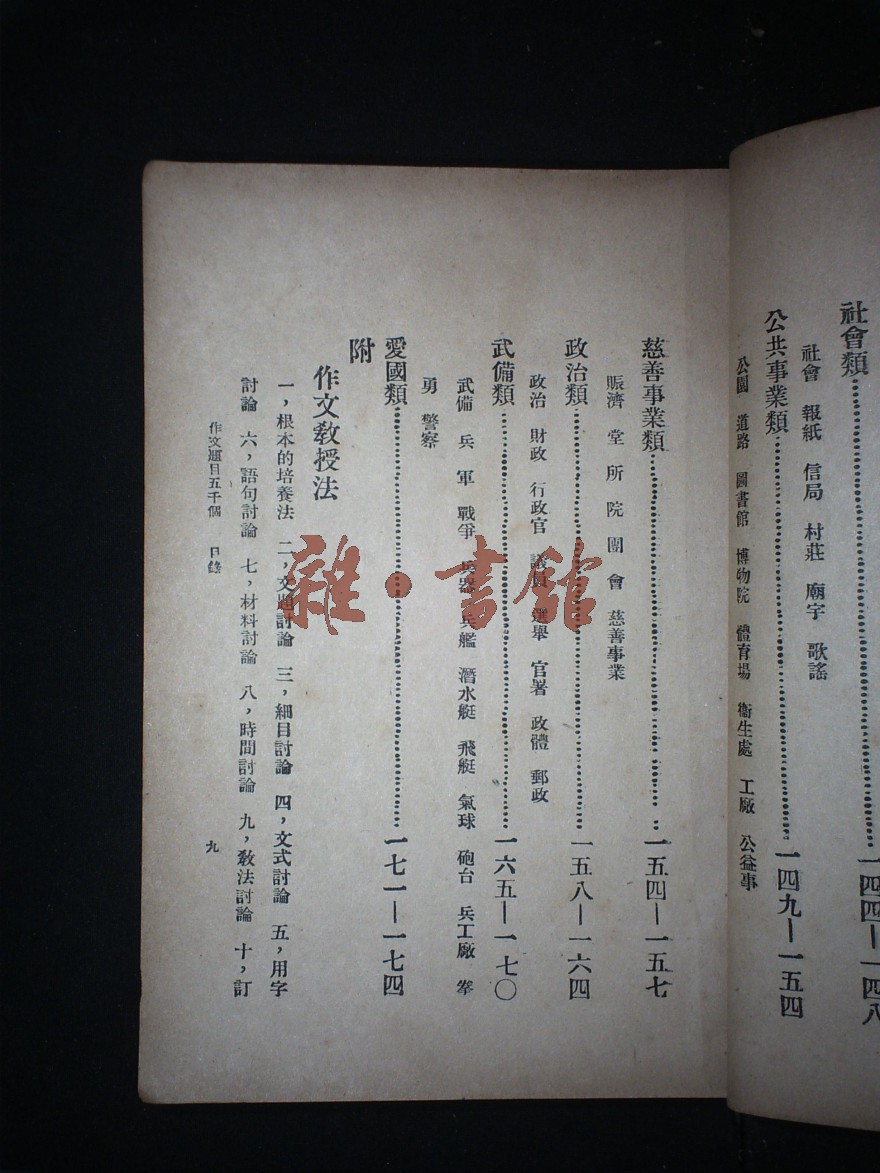 社會類……一四四—一四八
社會　報紙　信局　村莊　廟宇　歌謠
公共事業類……一四九—一五四
公園　道路　圖書館　博物院　體育場　衞生處　工廠　公益事
慈善事業類……一五四—一五七
賑濟　堂　所　院　團　會　慈善事業
政治類……一五八—一六四
政治　財政　行政官　議員　選舉　官署　政體　郵政
武備類……一六五—一七〇
武備　兵　軍　戰爭　兵器　兵艦　潛水艇　飛艇　氣球　砲台　兵工廠　拳
勇　警察
愛國類……一七一—一七四
附
作文教授法
一，根本的培養法　二，文題討論　三，細目討論　四，文式討論　五，用字
討論　六，語句討論　七，材料討論　八，時間討論　九，教法討論　十，訂
作文題目五千個　目錄
九
雜·書館